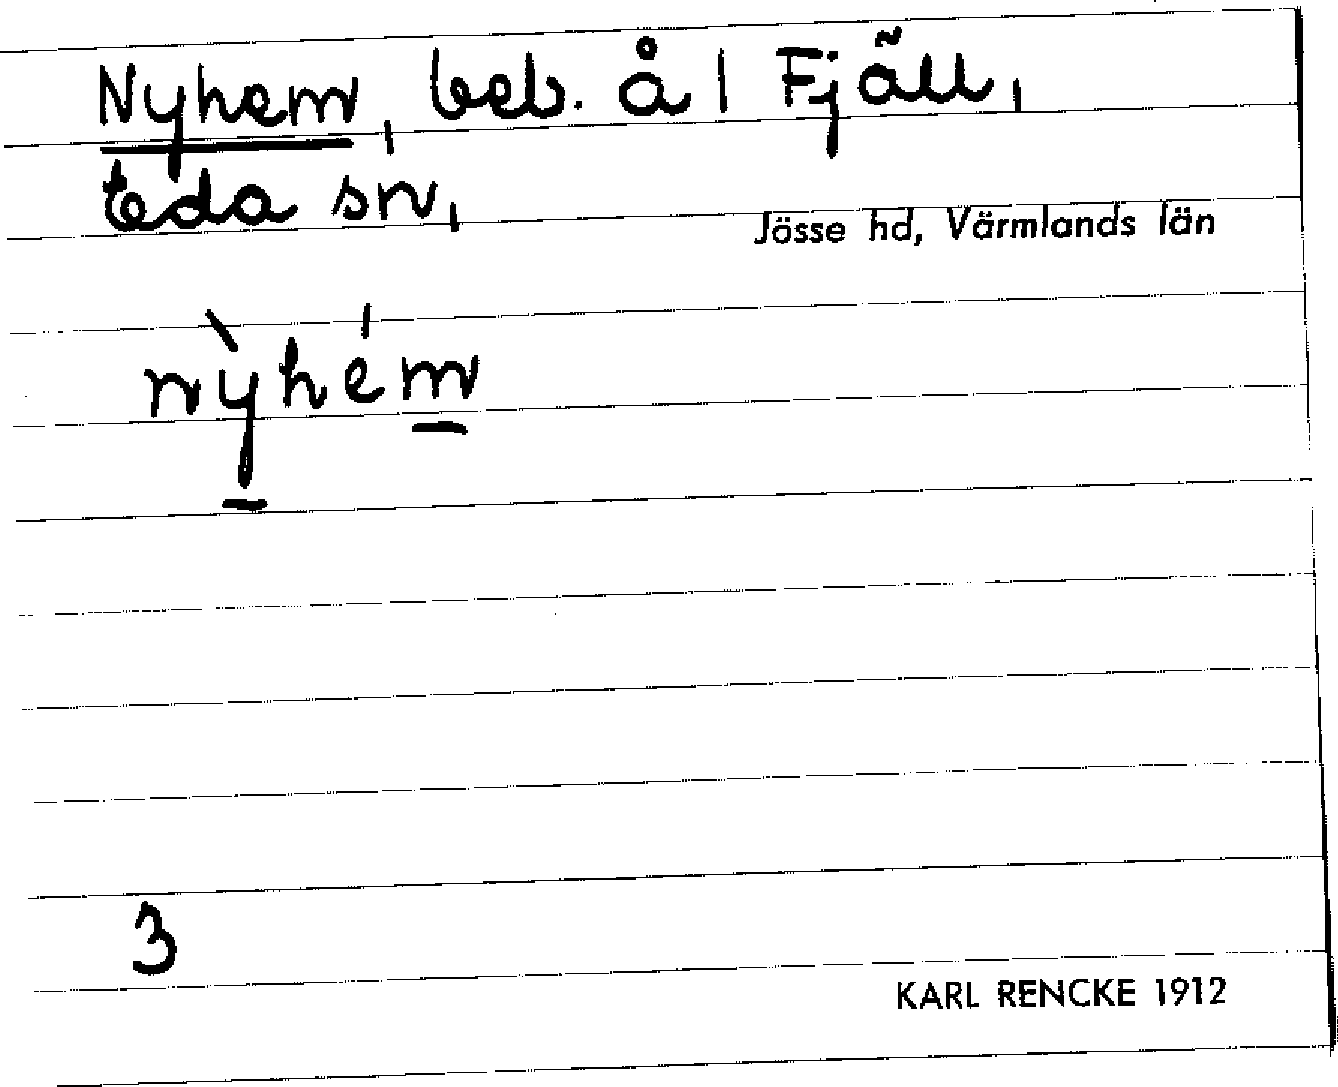 Nyhem, beb. å 1 Fjäll,
Eda sn,
Jösse hd, Värmlands län
nỳhém
3
KARL RENCKE 1912